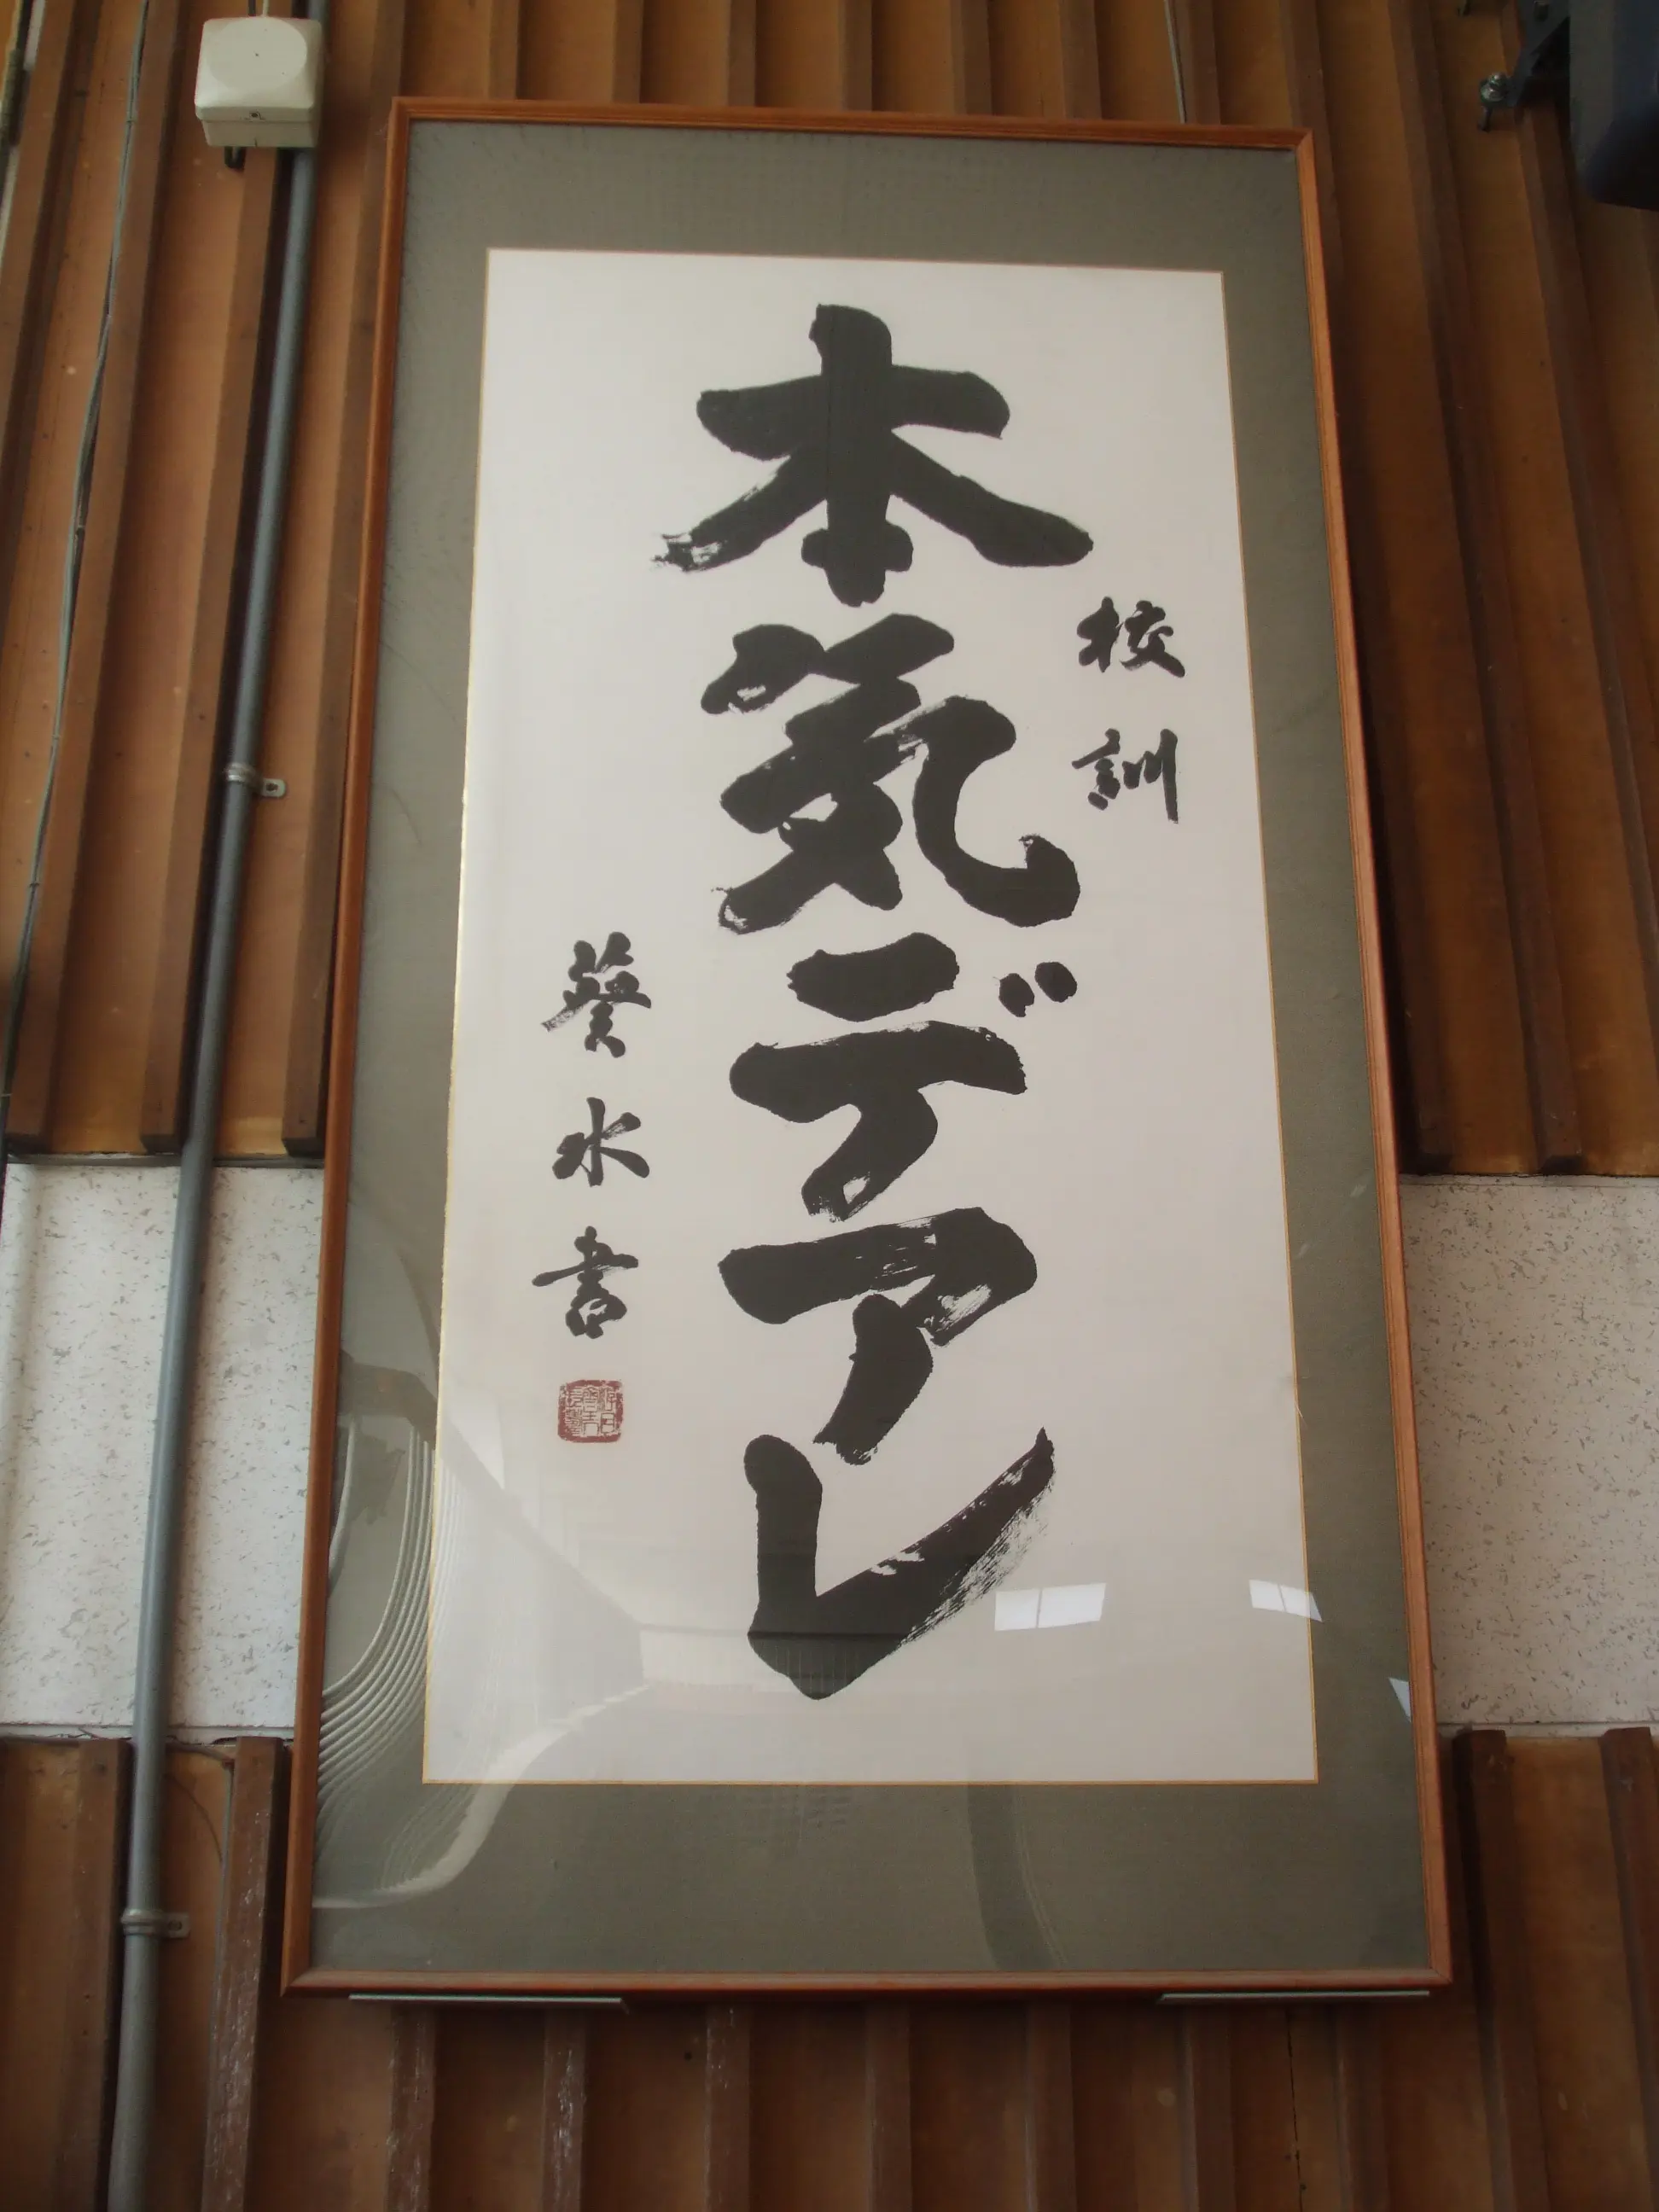 校訓
本気デアレ
葵水書